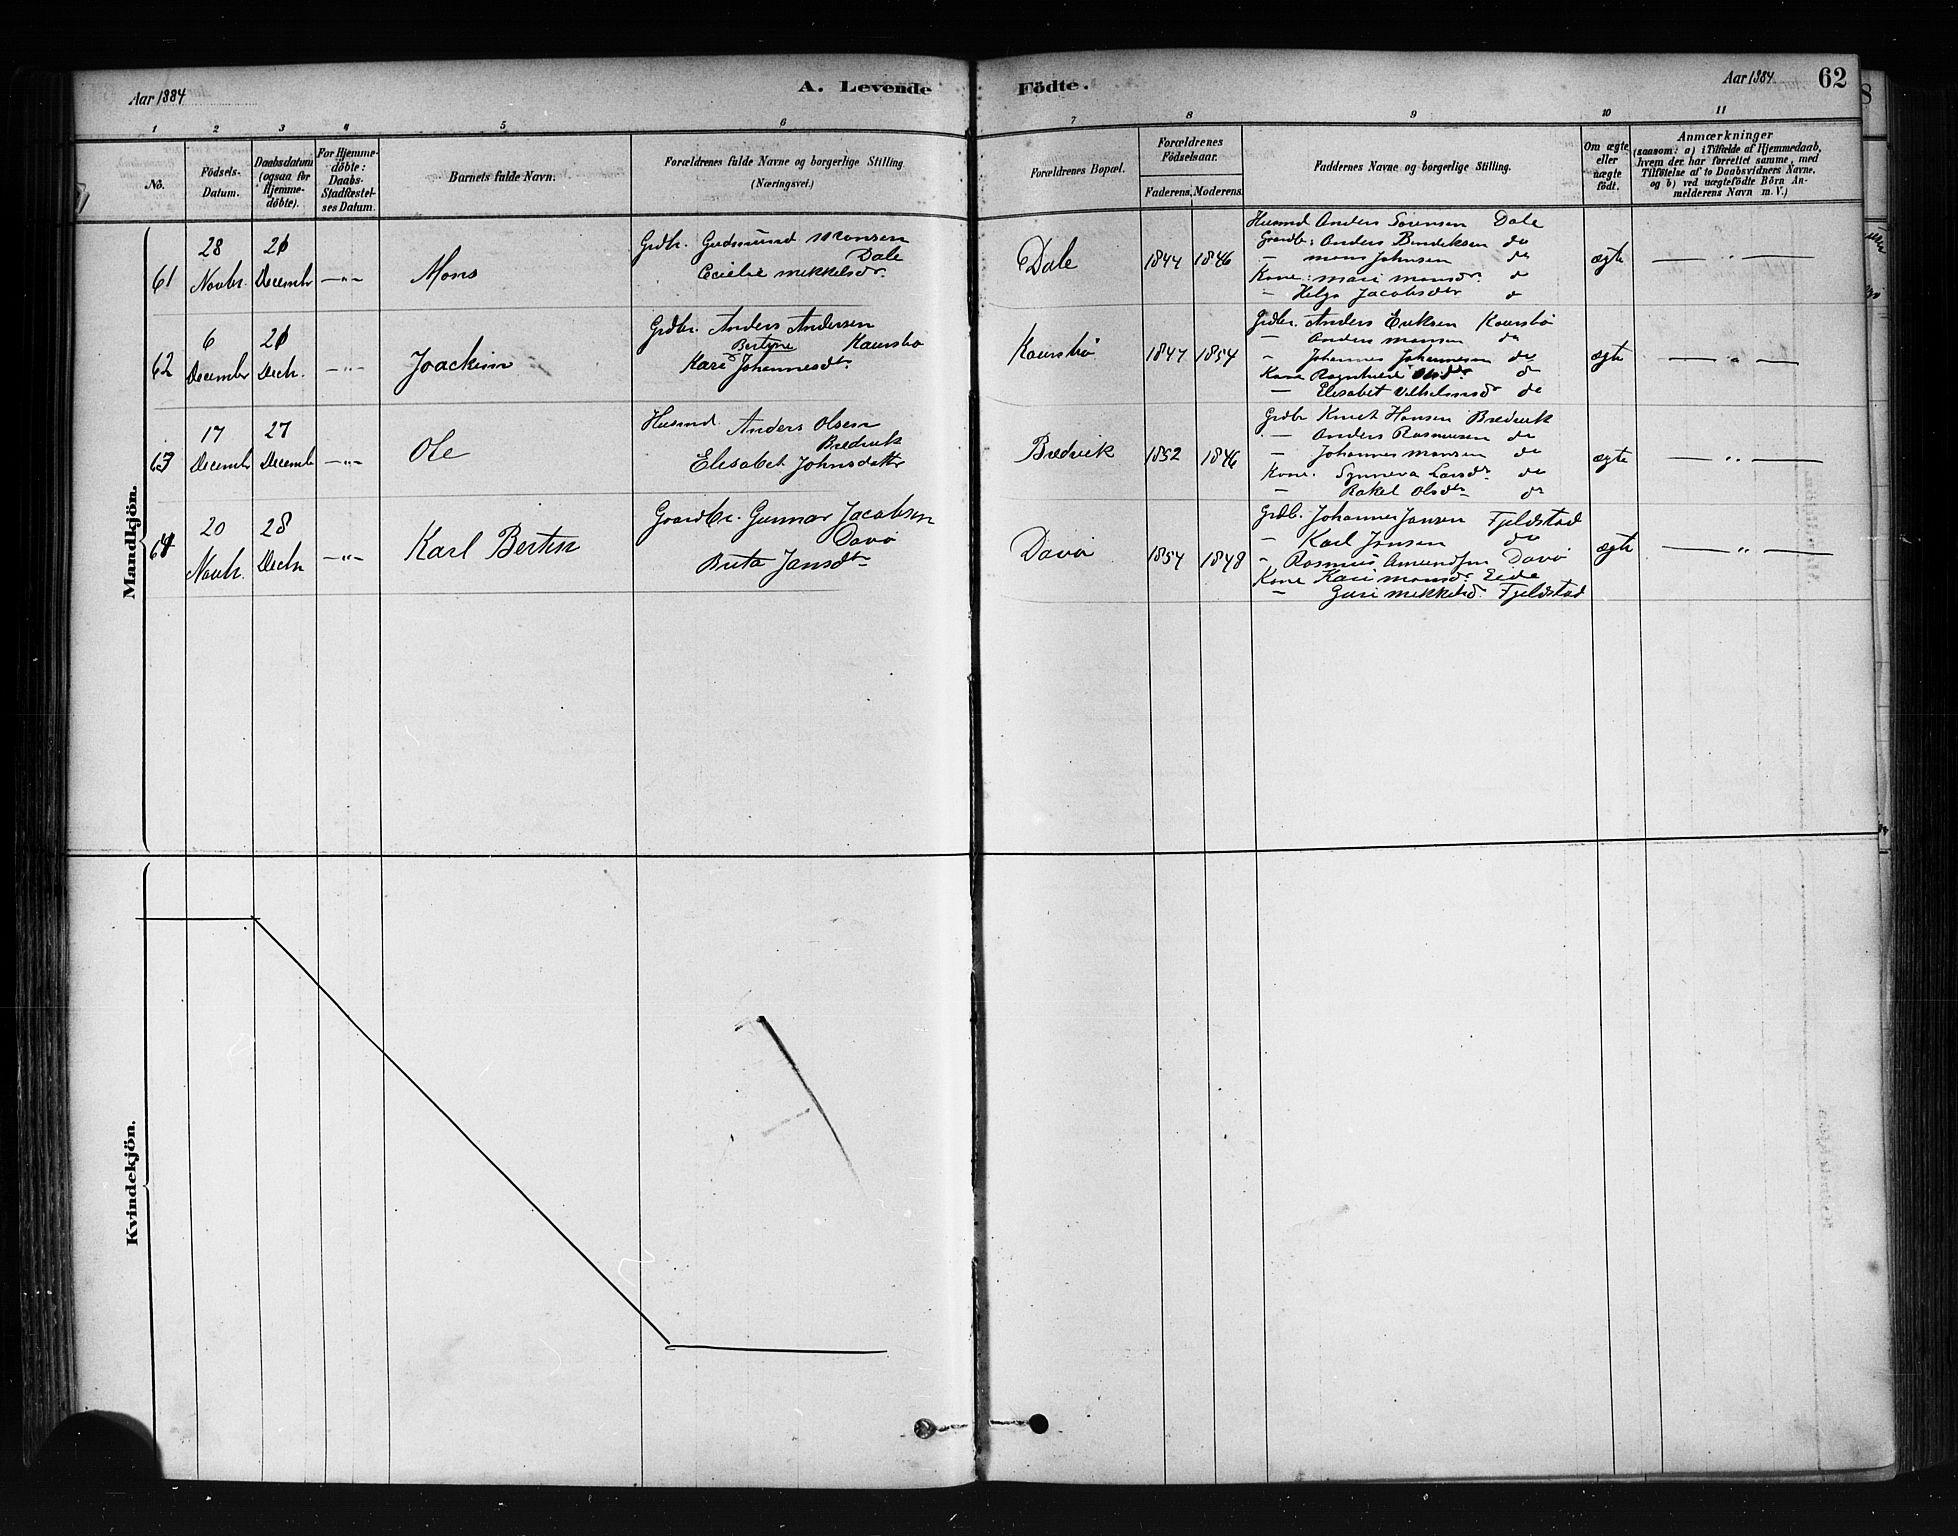 Aar 1884
A. Levende
Födte.
Aar 1884.
62
1 2 3 4 5 6 7 8 9 10 11
No.
Födsels-Datum.
Daabsdatum (ogsaa for Hjemme-döbte).
For Hjemme-döbte: Daabs-Stadfestel-ses Datum.
Barnets fulde Navn.
Forældrenes fulde Navne og borgerlige Stilling.
(Næringsvei.)
Forældrenes Bopæl.
Forældrenes Födselsaar.
Faderens. Moderens.
Faddernes Navne og borgerlige Stilling.
Om ægte eller uægte födt.
Anmærkninger
(saasom: a) i Tilfælde af Hjemmedaab,
hvem der har forrettet samme, med
Tilföielse af to Daabsvidners Navne,
og b) ved uægtefödte Börn An-
melderens Navn m. V.)
Mandkjön.
61
28 Novbr.
21 December
—"—
Mons
Grdbr. Gudmund Monsen
Dale
Cecilie Mikkelsdr
Dale
1844 1846
Husmd Anders Sørensen Dale
Gaardb: Anders Bendiksen do
— Mons Johnsen do
Kone: Mari Monsdr. do
— Helga Jacobsdtr do
ægte
— " —
62
6 December
21 Decbr.
—"—
Joackim
Grdbr. Anders Andersen
Bertine Kaursbø
Kari Johannesdtr.
Kaursbø
1847 1854
Grdbr. Anders Eriksen Kaursbø
— Anders Monsen do
" Johannes Johannesen do
Kone Ragnhild Olsdr. do
— Elisabet Vilhelmsdr do
ægte
— " —
63
17 December
27 December
—"—
Ole
Husmd Anders Olsen
Bredvik
Elisabet Johnsdatter
Bredvik
1852 1846
Grdbr Knut Hansen Bredvik
— Anders Rasmusen do
— Johannes Monsen do
Kone. Synneva Larsdr. do
— Rakel Olsdtr do
ægte
— " —
64
20 Novbr.
28 Decbr
—"—
Karl Bertin
Gaardbr. Gunnar Jacobsen
Davø
Brita Jansdtr
Davø
1854 1848
Grdb. Johannes Jansen Fjeldstad
— Karl Jansen do
" Rasmus Amundsen Davø
Kone Kari Monsdr. Eide
— Guri Mikkelsd. Fjeldstad
ægte
— " —
Kvindekjön.